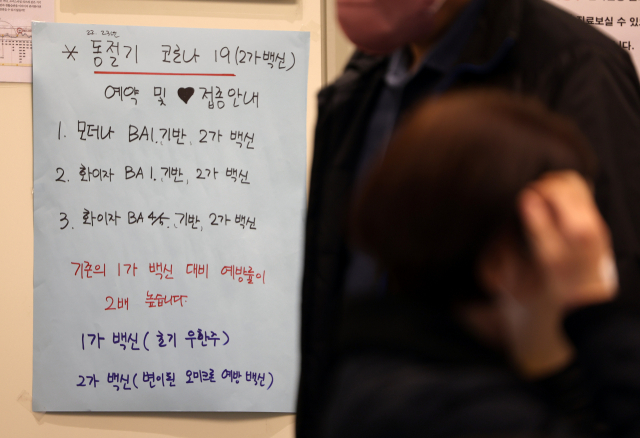 * 동절기 코로나 19 (2가백신)
예약 및 ♥ 접종안내
1. 모더나 BA1. 기반, 2가 백신
2. 화이자 BA 1. 기반, 2가 백신
3. 화이자 BA 4/5. 기반, 2가 백신
기존의 1가 백신 대비 예방률이
2배 높습니다.
1가 백신 (초기 우한주)
2가 백신 (변이된 오미크론 예방 백신)